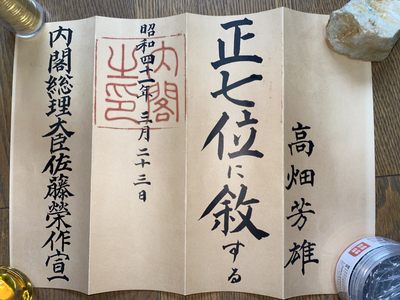 高畑芳雄
正七位に敘する
昭和四十一年三月二十三日
内閣之印
内閣総理大臣佐藤榮作宣